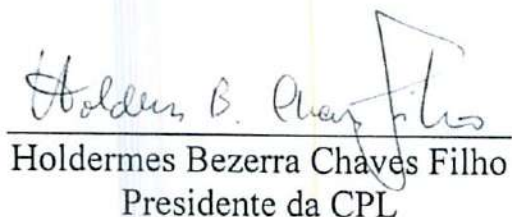 Holderms B. Chaves Filho
Holdermes Bezerra Chaves Filho
Presidente da CPL